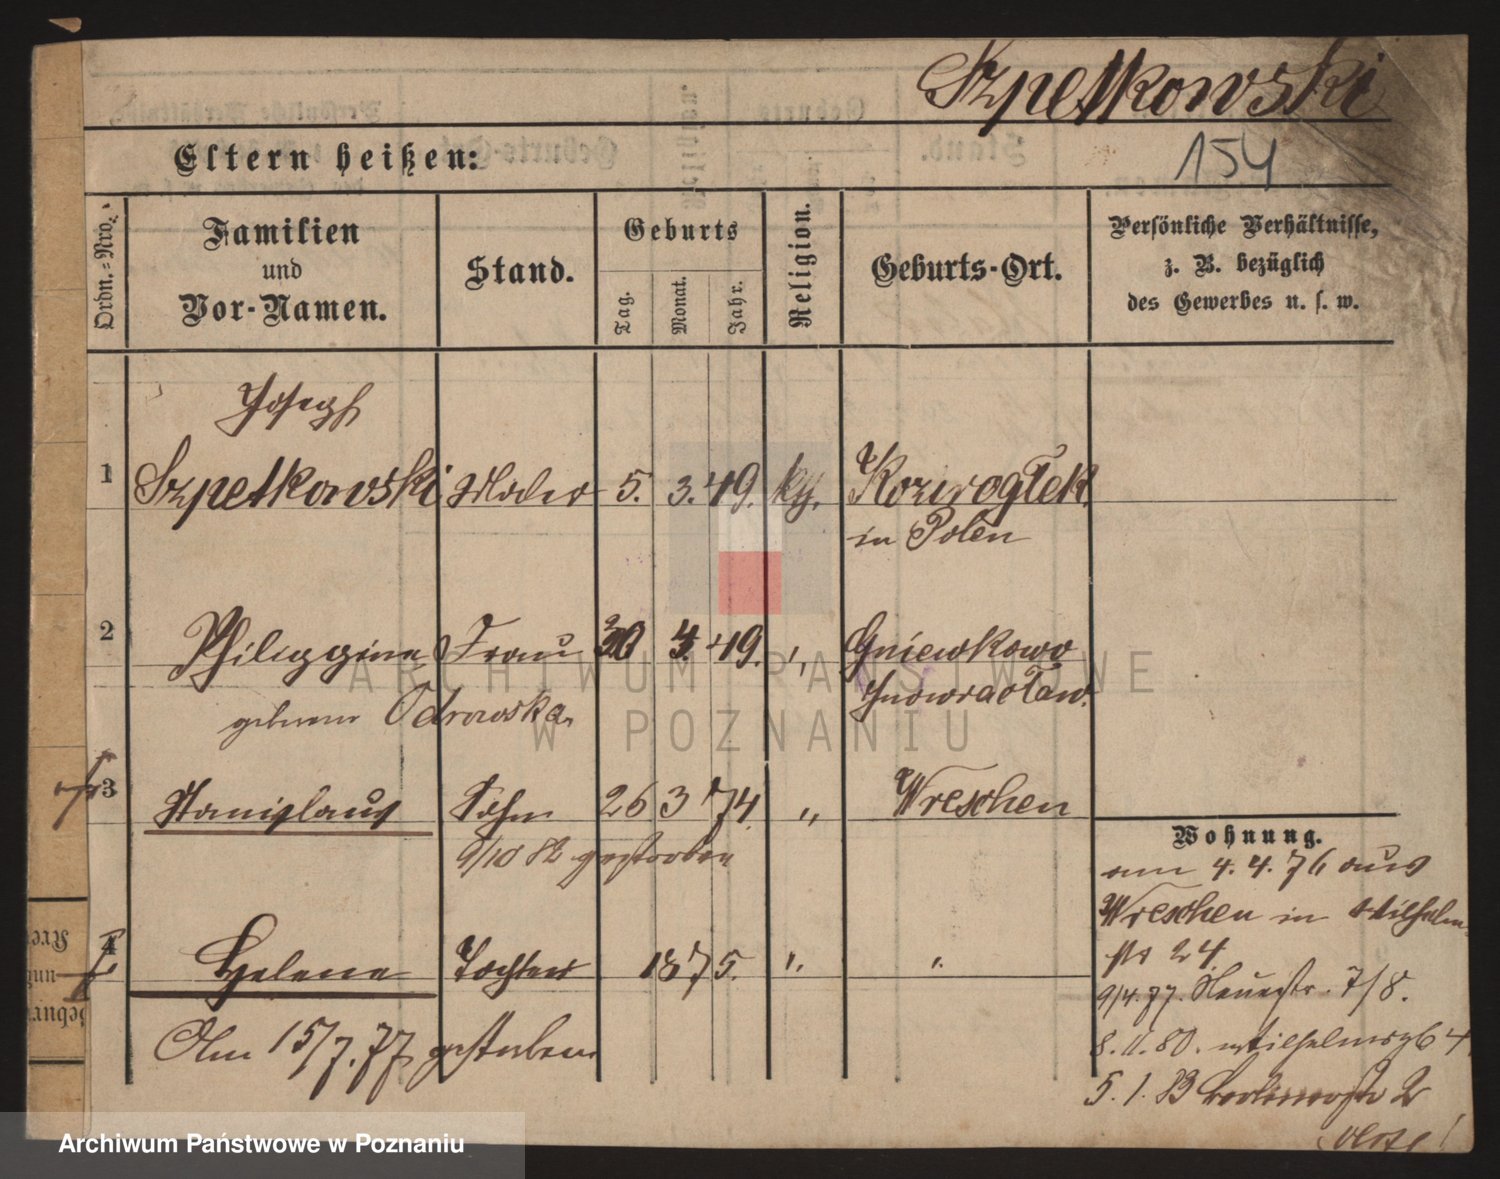 Szpetkowski
154
Eltern heißen:
Ordn.-Nro.
Familien und Vor-Namen.
Stand.
Geburts
Tag.
Monat.
Jahr.
Religion.
Geburts-Ort.
Persönliche Verhältnisse, z. B. bezüglich des Gewerbes u. s. w.
Joseph
1 Szpetkowski Maler 5. 3. 49. kth. Koziroglek
in Polen
2 Philippine Frau 30 4. 49. " Gniewkowo
geborene Odrowska Inowracław.
3 Stanislaus Sohn 26 3 74. " Wreschen
9/10 82 gestorben
Wohnung.
am 4. 4. 76 aus
Wreschen in Wilhelm
str 24
4 Helene Tochter 1875. " "
9/4. 77. Neuestr. 7/8.
Am 15/7. 77 gestorben
8. 11. 80. Wilhelmspl 4
5. 1. 83 str 2
verte!
Archiwum Państwowe w Poznaniu
ARCHIWUM PAŃSTWOWE
W POZNANIU